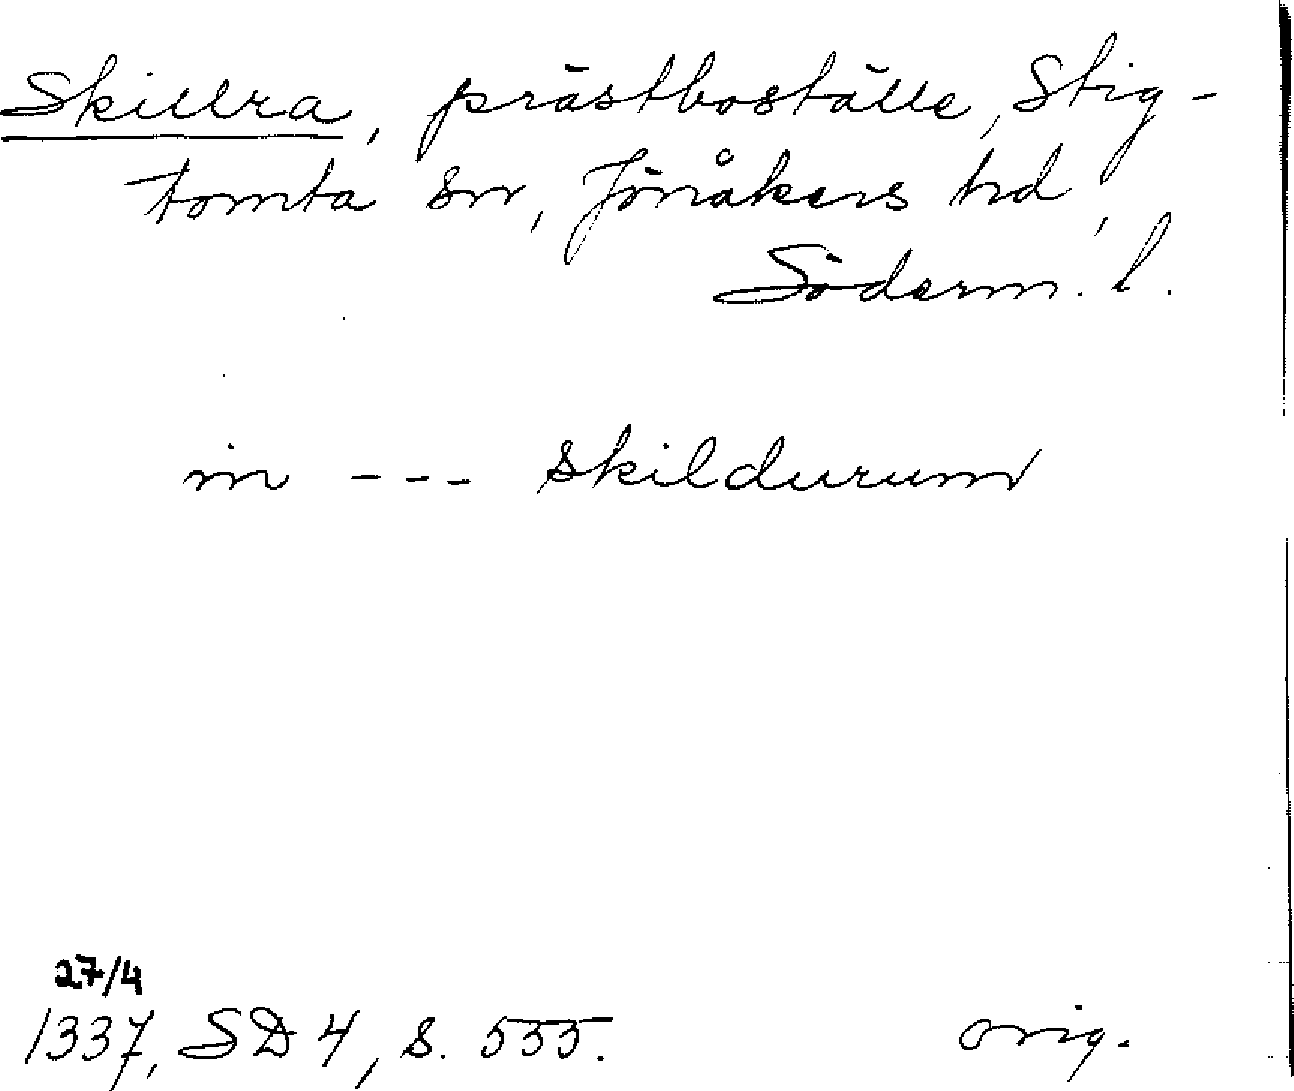 Skillra, prästboställe, Stig-
tomta sn, Jönåkers hd,
Söderm. l.
in --- skildurum
27/4
1337, SD 4, s. 555. orig.